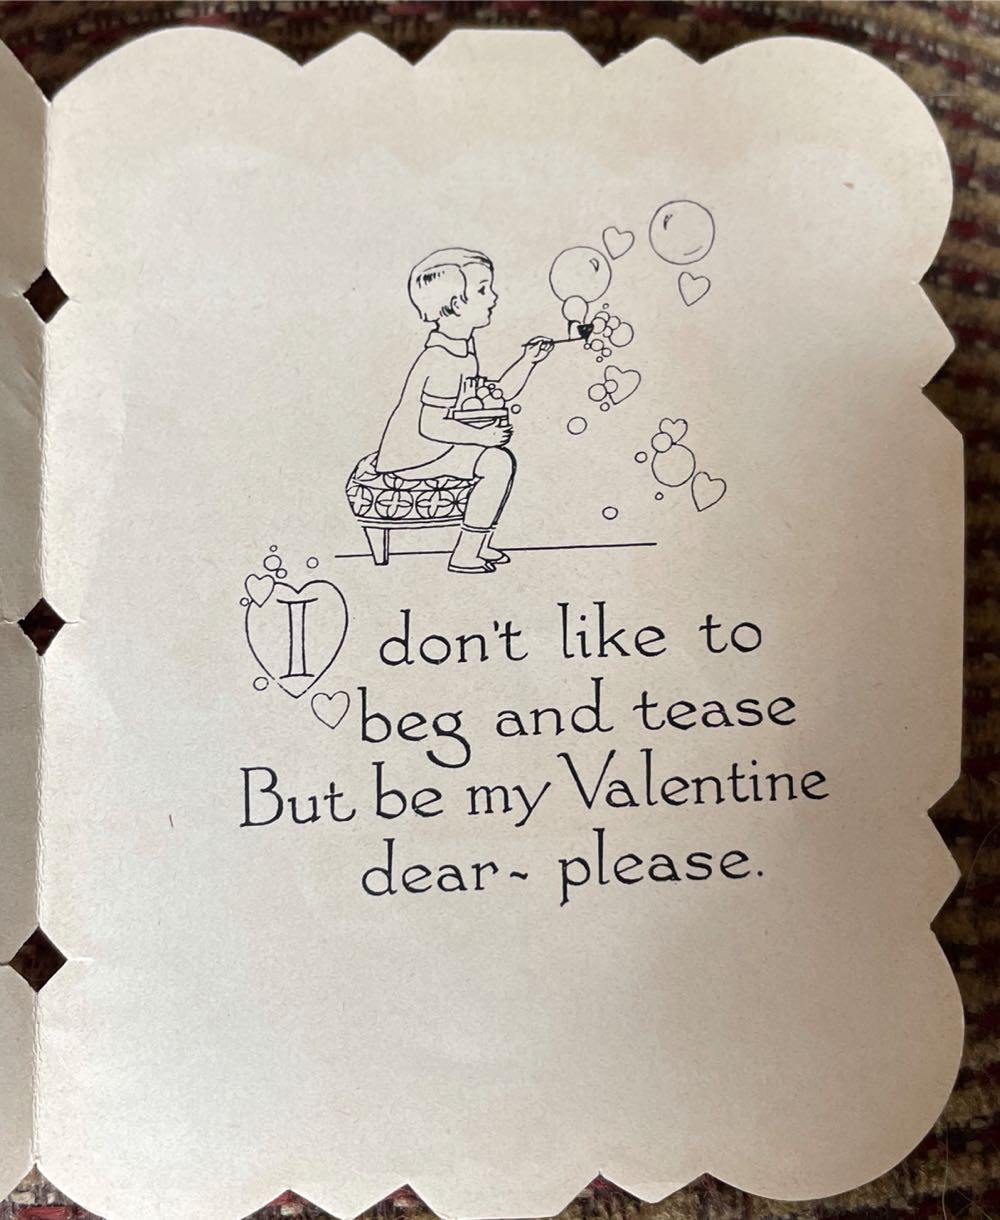 I don't like to
beg and tease
But be my Valentine
dear~ please.